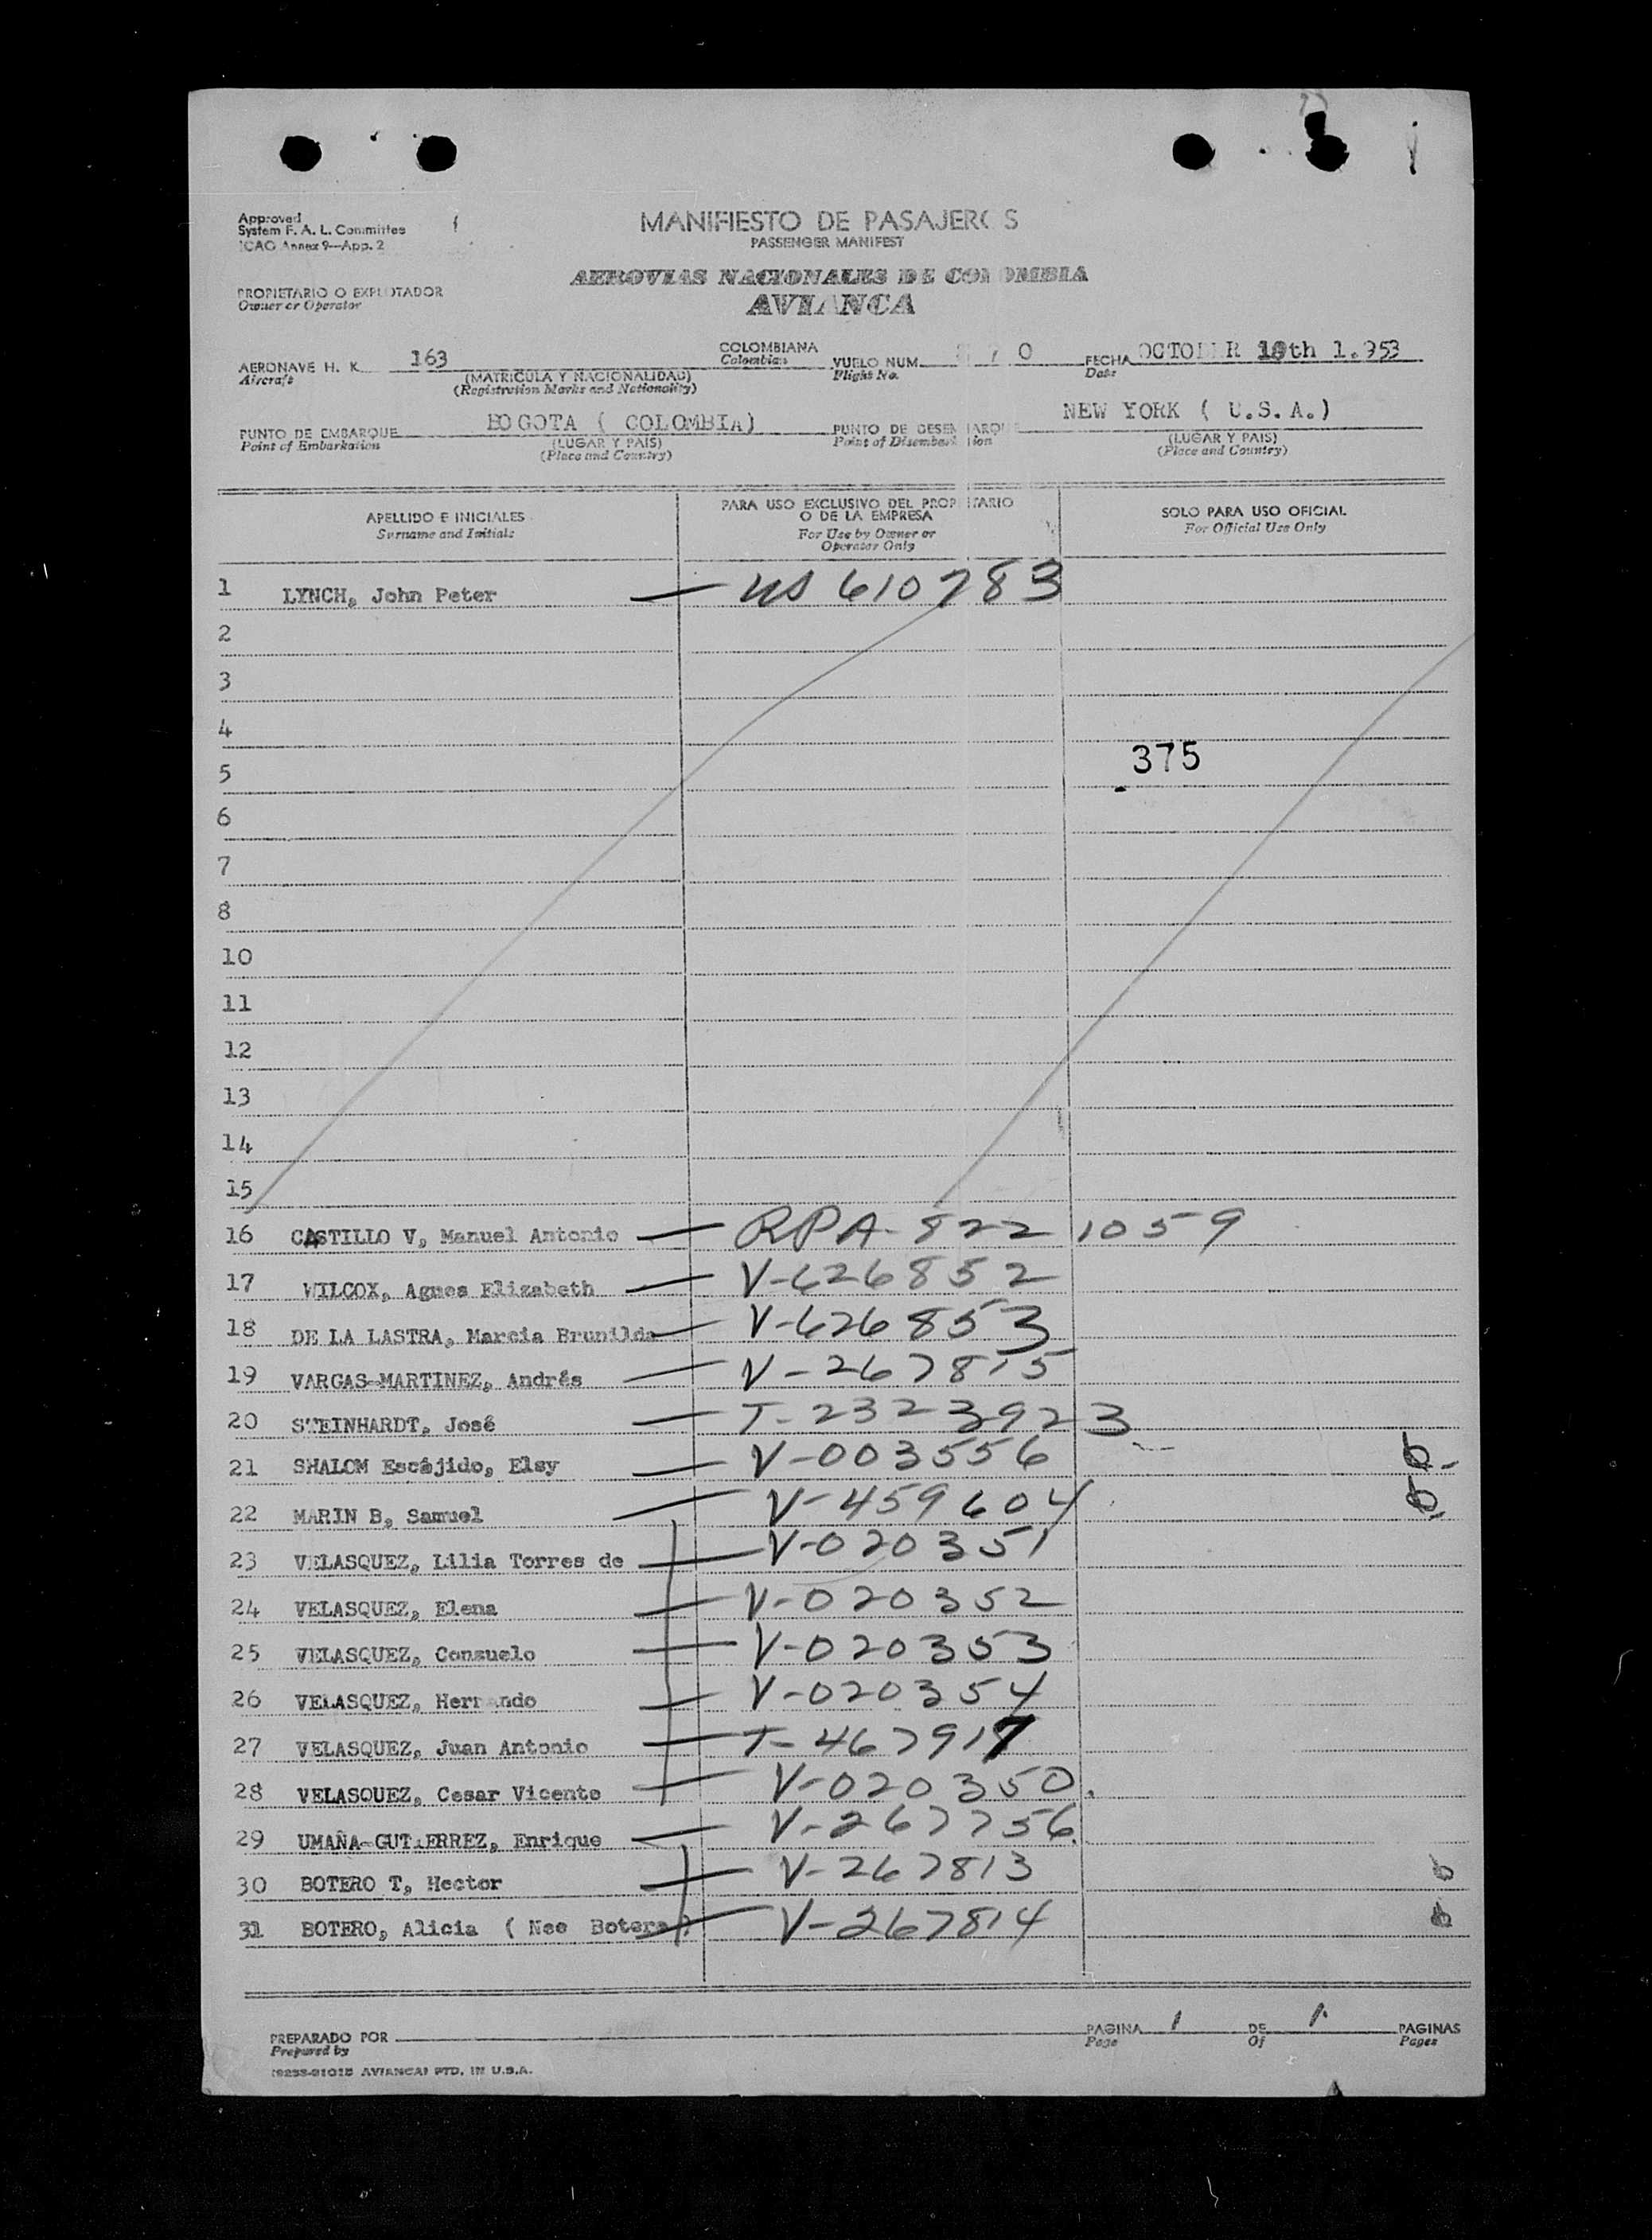 Approved
System F. A. L. Committee
ICAO Annex 9—App. 2
MANIFIESTO DE PASAJEROS
PASSENGER MANIFEST
AEROVIAS NACIONALES DE COLOMBIA
AVIANCA
PROPIETARIO O EXPLOTADOR
Owner or Operator
AERONAVE H. K. 163 COLOMBIANA VUELO NUM. FECHA OCTOBER th 1.953
Aircraft (MATRICULA Y NACIONALIDAD) Colombian Flight No. Date
(Registration Marks and Nationality)
PUNTO DE EMBARQUE BOGOTA ( COLOMBIA) PUNTO DE DESEMBARQUE NEW YORK ( U.S.A.)
Point of Embarkation (LUGAR Y PAIS) Point of Disembarkation (LUGAR Y PAIS)
(Place and Country) (Place and Country)
APELLIDO E INICIALES PARA USO EXCLUSIVO DEL PROPIETARIO O DE LA EMPRESA SOLO PARA USO OFICIAL
Surname and Initials For Use by Owner or Operator Only For Official Use Only
1 LYNCH, John Peter — US 610783
2
3
4
375
5
6
7
8
10
11
12
13
14
15
16 CASTILLO V, Manuel Antonio — RPA-822 1059
17 WILCOX, Agnes Elizabeth — V-626852
18 DE LA LASTRA, Marcia Brunilda — V-626853
19 VARGAS-MARTINEZ, Andrés — V-267815
20 STEINHARDT, José — T-2323923
21 SHALOM Escájido, Elsy — V-003556 b-
22 MARIN B, Samuel — V-459604 b
23 VELASQUEZ, Lilia Torres de — V-020351
24 VELASQUEZ, Elena — V-020352
25 VELASQUEZ, Consuelo — V-020353
26 VELASQUEZ, Hernando — V-020354
27 VELASQUEZ, Juan Antonio — T-467917
28 VELASQUEZ, Cesar Vicente — V-020350.
29 UMAÑA-GUTIERREZ, Enrique — V-267756.
30 BOTERO T, Hector — V-267813 b
31 BOTERO, Alicia ( Nee Botero ) — V-267814 b
PREPARADO POR PAGINA 1 DE 1 PAGINAS
Prepared by Page Of Pages
AVIANCA) PTD. IN U.S.A.